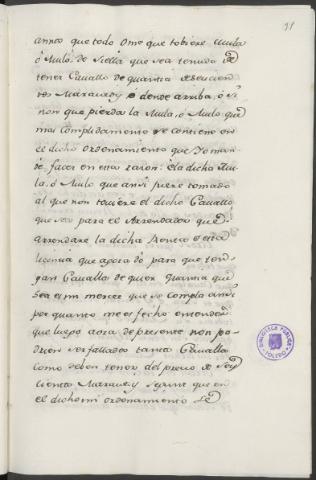 91
annos que todo Ome que tobiere Mula
ó Mulo de Siella que sea tenudo de
tener Cavallo de quantia de seiscien
tos Maravedis é dende arriba, ó si
non que pierda la Mula, ó Mulo que
mas complidamente se contiene en
el dicho ordenamiento que Yo man
dé facer en esta razon: é la dicha Mu
la, ó Mulo que ansi fuere tomado
al que non toviere el dicho Cavallo
que sea para el Arrendador que
arrendare la dicha Renta é esta
licencia que agora do para que ten
gan Cavallo de quier quantia que
sea es mi merced que se cumpla ansi
por quanto me es fecho entender
que luego aora de presente non po
drien ser fallados tantos Cavallos
como deben tener del precio de Seis
cientos Maravedis segunt que en
el dicho mi ordenamiento se
BIBLIOTECA PUBLICA
TOLEDO